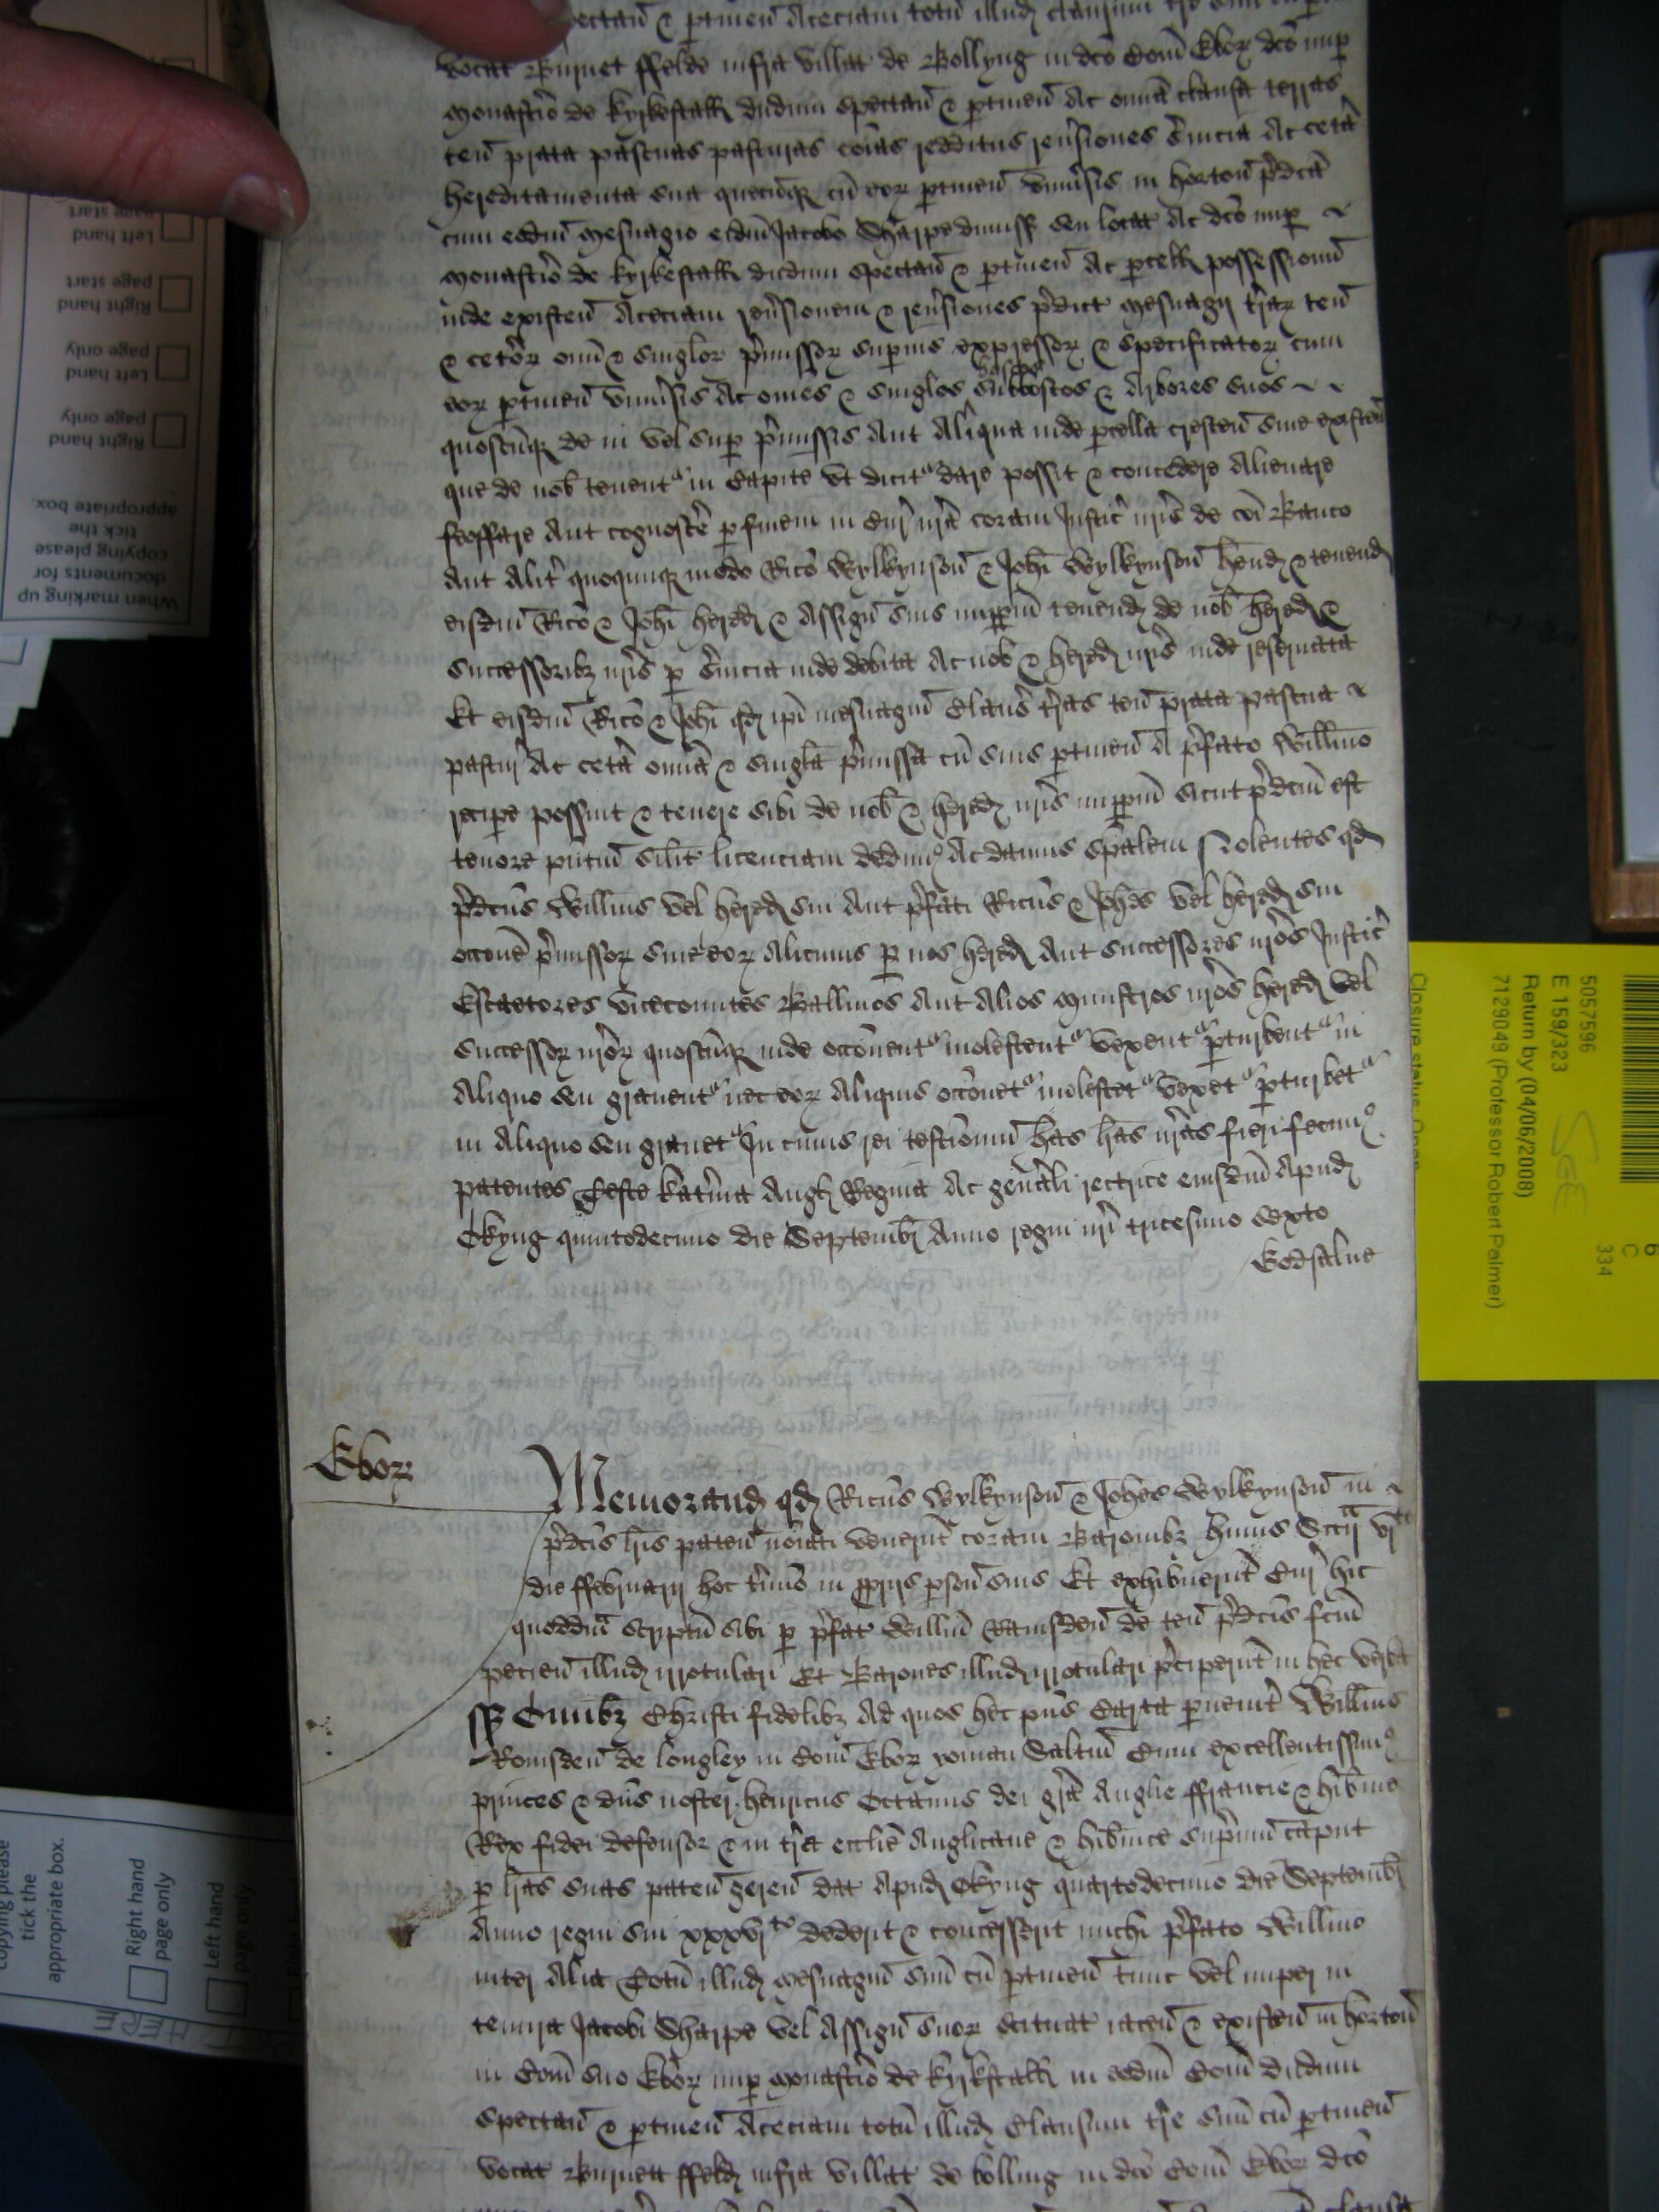 spectan & ptinen Aceciam totu illud clausum tre
vocat Burnet ffelde infra villat de Bollyng in dco Com Ebor dco nup
Monastio de kyrkestall dudum spectan & ptinen Ac omia clausa terras
ten prata pascuas pasturas coias redditus reusiones suicia Ac ceta
hereditamenta sua quecuq cu eor ptinen vniusis in horton pdca
cum eodm mesuagio eidm Jacobo Sharpe dimiss seu locat Ac dco nup
Monastio de kyrkestall dudum spectan & ptinen Ac pcell possessionu
inde existen Aceciam reusionem & reusiones pdict mesuagij trar ten
& cetor oim & singlor pmissor supius expressor & specificator cum
eor ptinen vniusis Ac omes & singlos boscos subboscos & Arbores suos
quoscuq de in vel sup pmissis Aut Aliqua inde pcella crescen siue existen
que de nob tenent in Capite vt dicit dare possit & concedere Alienare
feoffare Aut cognosce p finem in Cur nra coram Justic nris de coi Banco
Aut Alit quocumq modo Rico Wylkynson & Johi Wylkynson hend & tenend
eisdm Rico & Johi hered & Assign suis imppm tenend de nob hered &
successorib nris p suicia inde debita Ac nob & hered nris inde reseruata
Et eisdm Rico & Johi qd ipi mesuagiu Claus tras ten prata pascua
pastur Ac ceta omia & singla pmissa cu suis ptinen A pfato Willmo
recipe possint & tenere sibi de nob & hered nris imppm sicut pdcm est
tenore pntiu silit licenciam dedim Ac damus spalem Nolentes qd
pdcus Willms vel hered sui Aut pfati Ricus & Johes vel hered sui
occone pmissor siue eor Alicuius p nos hered Aut successores nros Justic
Escaetores vicecomites Balliuos Aut Alios Ministros nros hered vel
successor nror quoscuq inde occonent molestent vexent pturbent in
Aliquo seu grauent nec eor Aliquis occonet molestet vexet pturbet
in Aliquo seu grauet In cuius rei testiomu has lras nras fieri fecim
patentes Teste Katina Angl Regina Ac genali rectrice eiusdm Apud
Okyng quintodecimo die Septembr Anno regni nri tricesimo sexto
Godsalue
Ebor
Memorand qd Ricus Wylkynson & Johes Wylkynson in
pdcis lris paten noiati venerut coram Baronib huius Sccij vj to
die ffebruarij hoc tmio in ppriis pson suis Et exhibuerut Cur hic
quoddm scriptu sibi p pfat Willm Ramsden de ten pdcis fcm
peten illud irrotulari Et Barones illud irrotulari pceperut in hec verba
ss Omib Christi fidelib Ad quos hec pns Carta puenit Willms
Romsden de longley in Com Ebor yoman Saltm Cum excellentissim
princes & dns noster henricus Octauus dei gra Anglie ffrancie & hibnie
Rex fidei defensor & in tra ecclie Anglicane & hibnice supmm caput
p lras suas paten geren dat Apud Okyng quartodecimo die Septembr
Anno regni sui xxxvj to dederit & concesserit michi pfato Willmo
inter Alia Totu illud mesuagiu suu cu ptinen tunc vel nuper in
tenura Jacobi Sharpe vel Assign suor scituat iacen & existen in horton
in Com suo Ebor nup Monastio de kyrkstall in eodm Com dudum
spectan & ptinen Aceciam totu illud Clausum tre suu cu ptinen
vocat Burnett ffeld infra villat de bolling in dco Com Ebor dco
When marking up
documents for
copying please
tick the
appropriate box.
Right hand
page only
Left hand
page only
Right hand
page start
Left hand
page start
5057596
E 159/323
Return by (04/06/2008)
7129049 (Professor Robert Palmer)
Closure status Open
SGE
6
C
334
copying please
tick the
appropriate box.
Right hand
page only
Left hand
page only
HERE